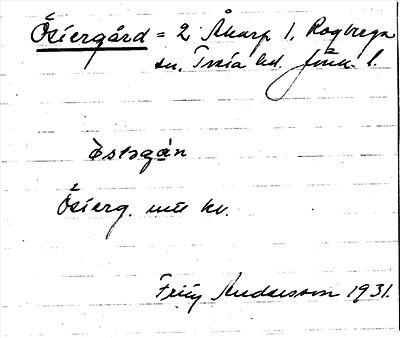 Östergård = 2 Åkarp 1, Rogberga
sn. Tveta hd. Jönk. l.
östəgån
Österg. utt kv.
Fritz Andersson 1931.